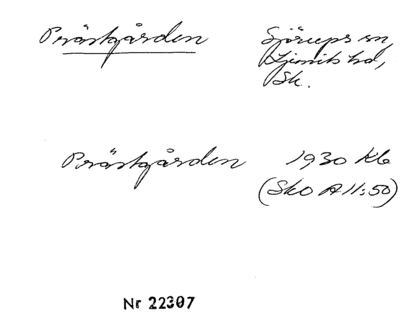 Prästgården
Sjörups sn,
Ljunits hd,
Sk.
Prästgården 1930 Kb
(Sko A 11:50)
Nr 22307